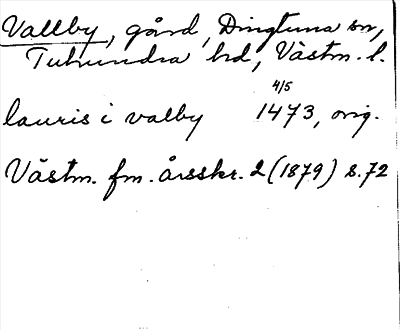 Vallby, gård, Dingtuna sn,
Tuhundra hd, Västm. l.
4/5
lauris i valby 1473, orig.
Västm. fm. årsskr. 2 (1879) s. 72